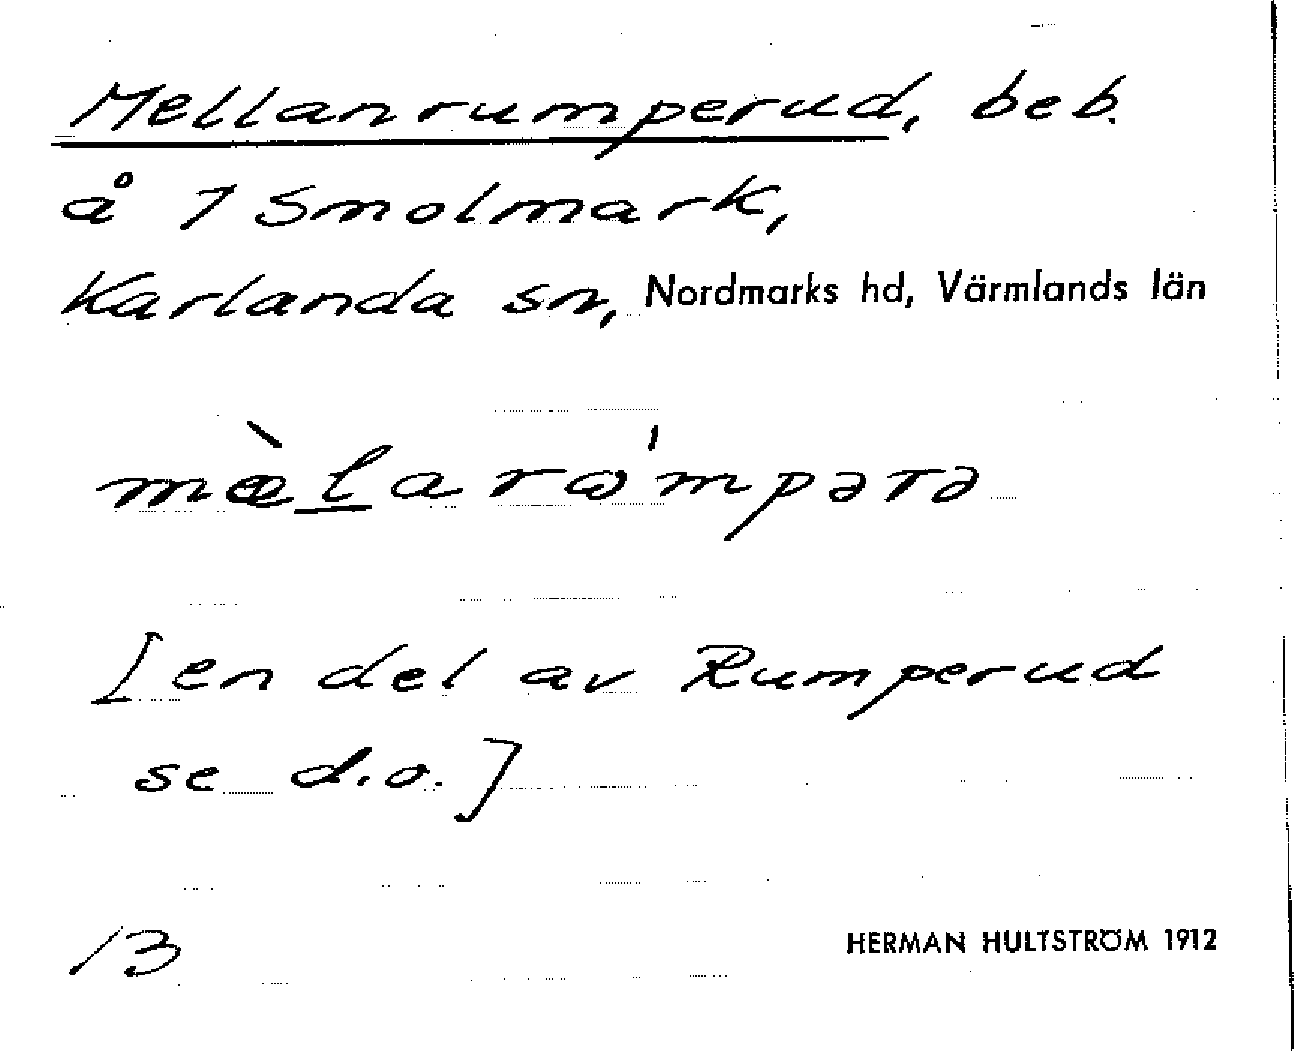 Mellanrumperud, beb.
å 1 Smolmark,
Karlanda sn, Nordmarks hd, Värmlands län
mæ̀larω̍mpərə
[en del av Rumperud
se d.o.]
13
HERMAN HULTSTRÖM 1912